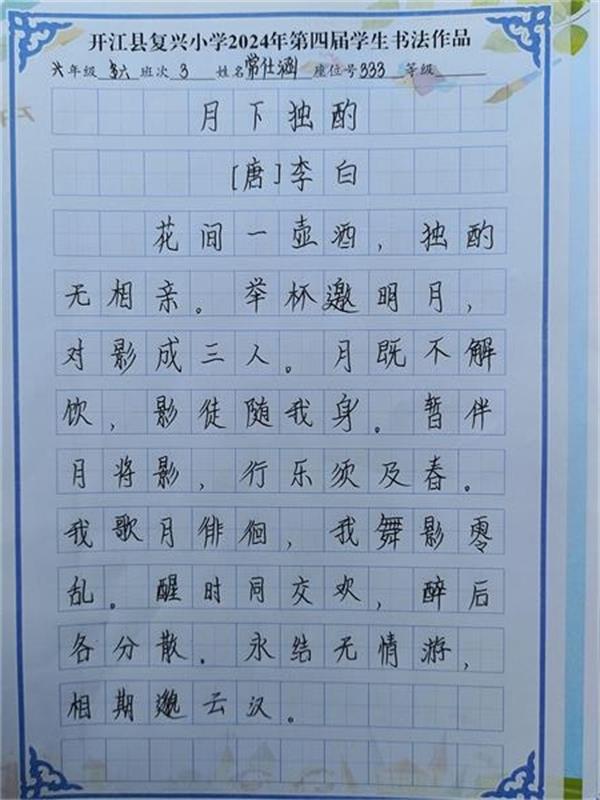 开江县复兴小学2024年第四届学生书法作品
年级 六 班次 3 姓名 常仕涵 座位号 333 等级
月下独酌
[唐]李白
花间一壶酒，独酌
无相亲。举杯邀明月，
对影成三人。月既不解
饮，影徒随我身。暂伴
月将影，行乐须及春。
我歌月徘徊，我舞影零
乱。醒时同交欢，醉后
各分散。永结无情游，
相期邈云汉。